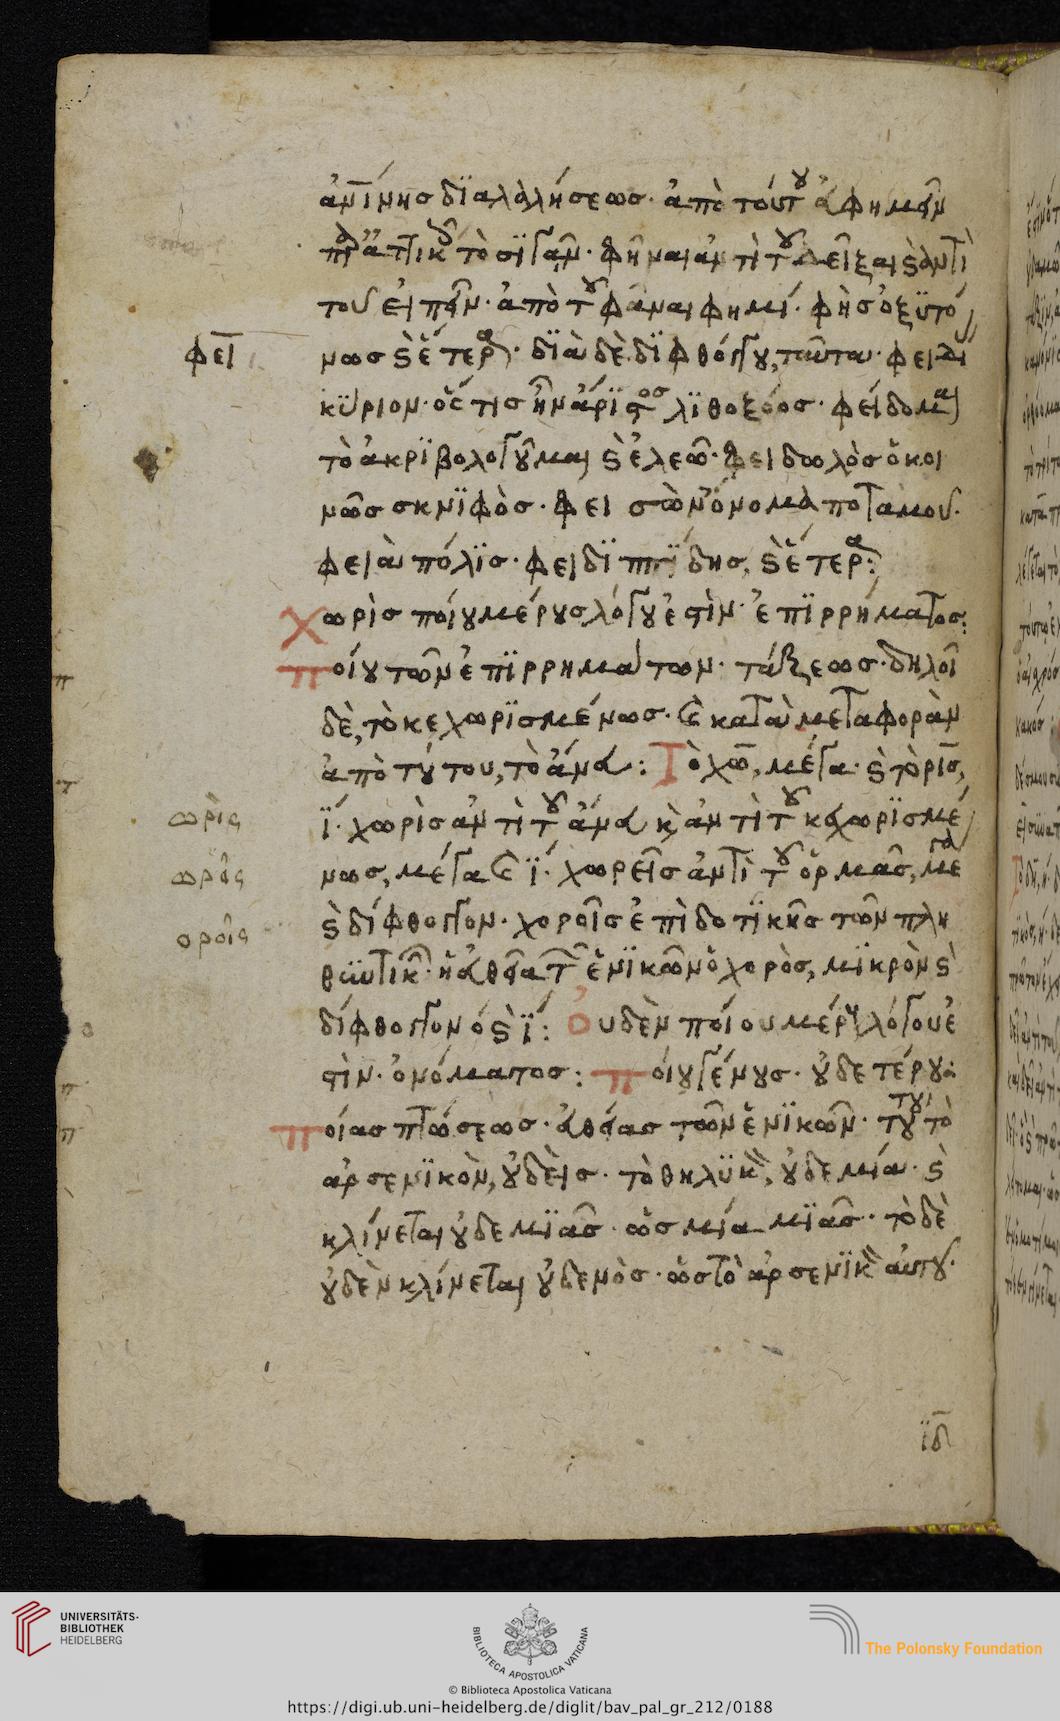 ἀντίμησ διαλαλήσεωσ· ἀπὸ τούτου
τὸ σιγᾶν· φῆναι ἀντὶ τοῦ δεῖξαι καὶ ἀντὶ
τοῦ εἰπεῖν· ἀπὸ τοῦ φάναι φημί· φὴσ ὀξυτό
φει
νωσ καὶ ἕτερα· διὰ δὲ διφθόγγου, ταῦτα· φειδι
κύριον· ὅς τισ ἦν ἄριστοσ λιθοξόοσ· φείδομαι
τὸ ἀκριβολογοῦμαι καὶ ἐλεῶ· φειδωλὸσ ὁ κοι
νῶσ σκνιφὸσ· φεισὼν ὄνομα ποταμοῦ·
φειὰ πόλισ· φειδιππίδησ, καὶ ἕτερα:
χωρὶσ ποίου μέρουσ λόγου ἐστὶν· ἐπιρρήματοσ:
ποίου τῶν ἐπιρρημάτων· τάξεωσ· δηλοῖ
δὲ, τὸ κεχωρισμένωσ· καὶ κατὰ μεταφορὰν
ἀπὸ τούτου, τὸ ἄνευ: Τὸ χω, μέγα· καὶ τὸ ρισ,
ωρὶς
ι· χωρὶσ ἀντὶ τοῦ ἄνευ καὶ ἀντὶ τοῦ κεχωρισμέ
ωρεῖς
νωσ, μέγα καὶ ι· χωρεῖσ ἀντὶ τοῦ ὁρμᾶσ, μέγα
οροῖς
καὶ δίφθογγον· χοροῖσ ἐπὶ δοτικῆσ τῶν πλη
θυντικῶν· ἡ εὐθεῖα τῶν ἑνικῶν ὁ χορὸσ, μικρὸν καὶ
δίφθογγον ὁ καὶ ι: Οὐδὲν ποίου μέρους λόγου ἐ
στὶν· ὀνόματοσ: ποίου γένουσ· οὐδετέρου:
ποίασ πτώσεωσ· εὐθείασ τῶν ἑνικῶν· τούτου τὸ
ἀρσενικὸν, οὐδεὶσ· τὸ θηλυκὸν, οὐδεμία· καὶ
κλίνεται οὐδεμιᾶσ· ὡσ μία μιᾶσ· τὸ δὲ
οὐδὲν κλίνεται οὐδενὸσ· ὡσ τὸ ἀρσενικὸν αὐτοῦ·
ιδ
UNIVERSITÄTS-
BIBLIOTHEK
HEIDELBERG
BIBLIOTECA APOSTOLICA VATICANA
The Polonsky Foundation
© Biblioteca Apostolica Vaticana
https://digi.ub.uni-heidelberg.de/diglit/bav_pal_gr_212/0188